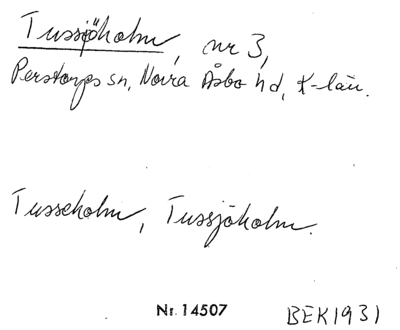 Tussjöholm, nr 3,
Perstorps sn, Norra Åsbo hd, K-län.
Tusseholm, Tussjöholm.
Nr. 14507 BEK1931